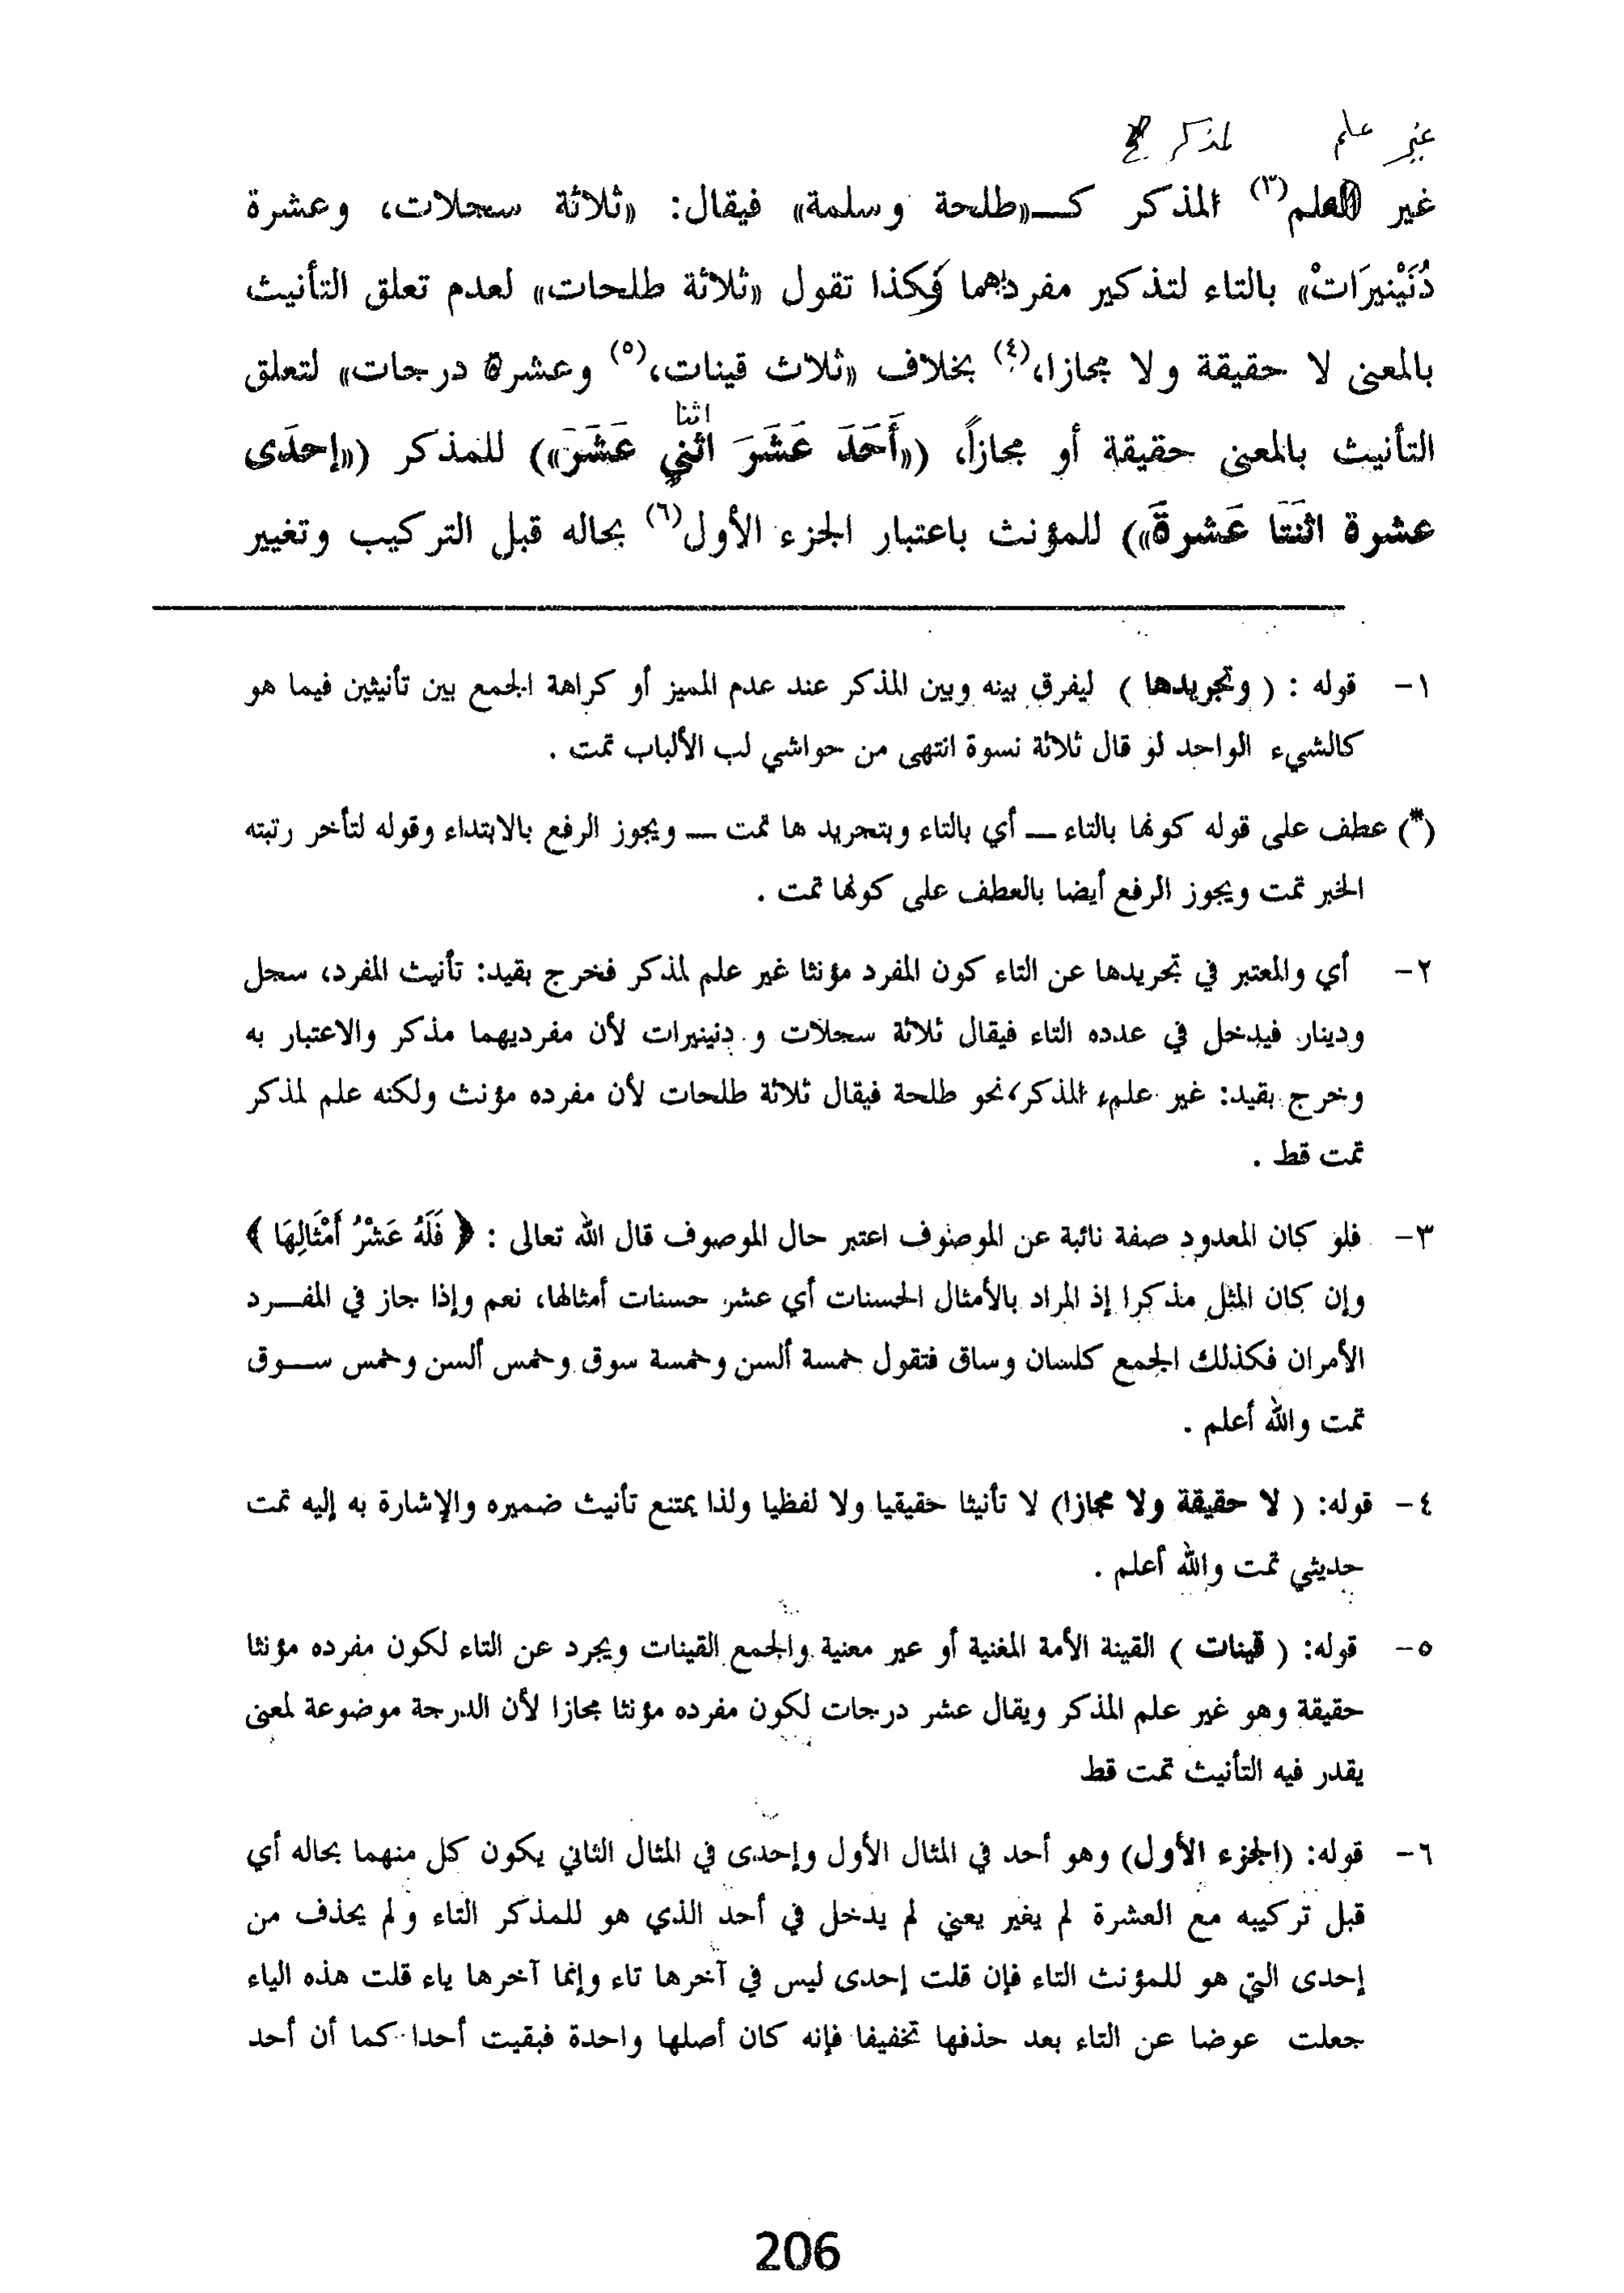 غير علم لمذكر
غير العلم(٣) المذكر كـ«طلحة وسلمة» فيقال: «ثلاثة سجلات، وعشرة
دُنَيْنيرَاتْ» بالتاء لتذكير مفردهما فكذا تقول «ثلاثة طلحات» لعدم تعلق التأنيث
بالمعنى لا حقيقة ولا مجازا،(٤) بخلاف «ثلاث قينات،(٥) وعشرة درجات» لتعلق
اثنا
التأنيث بالمعنى حقيقة أو مجازاً، («أَحَدَ عَشَرَ اثني عَشَرَ») للمذكر («إحدَى
عشرة اثنَتَا عَشرةَ») للمؤنث باعتبار الجزء الأول(٦) بحاله قبل التركيب وتغيير
١- قوله : ( وتجريدها ) ليفرق بينه وبين المذكر عند عدم المميز أو كراهة الجمع بين تأنيثين فيما هو
كالشيء الواحد لو قال ثلاثة نسوة انتهى من حواشي لب الألباب تمت .
(*) عطف على قوله كونها بالتاء — أي بالتاء وبتجريد ها تمت — ويجوز الرفع بالابتداء وقوله لتأخر رتبته
الخبر تمت ويجوز الرفع أيضا بالعطف على كونها تمت .
٢- أي والمعتبر في تجريدها عن التاء كون المفرد مؤنثا غير علم لمذكر فخرج بقيد: تأنيث المفرد، سجل
ودينار فيدخل في عدده التاء فيقال ثلاثة سجلات و دنينيرات لأن مفرديهما مذكر والاعتبار به
وخرج بقيد: غير علم المذكر، نحو طلحة فيقال ثلاثة طلحات لأن مفرده مؤنث ولكنه علم لمذكر
تمت قط .
٣- فلو كان المعدود صفة نائبة عن الموصوف اعتبر حال الموصوف قال الله تعالى : ﴿ فَلَهُ عَشْرُ أَمْثَالِهَا ﴾
وإن كان المثل مذكرا إذ المراد بالأمثال الحسنات أي عشر حسنات أمثالها، نعم وإذا جاز في المفـــرد
الأمران فكذلك الجمع كلسان وساق فتقول خمسة ألسن وخمسة سوق وخمس ألسن وخمس ســـوق
تمت والله أعلم .
٤- قوله: ( لا حقيقة ولا مجازا) لا تأنيثا حقيقيا ولا لفظيا ولذا يمتنع تأنيث ضميره والإشارة به إليه تمت
حديثي تمت والله أعلم .
٥- قوله: ( قينات ) القينة الأمة المغنية أو عير معنية والجمع القينات ويجرد عن التاء لكون مفرده مؤنثا
حقيقة وهو غير علم المذكر ويقال عشر درجات لكون مفرده مؤنثا مجازا لأن الدرجة موضوعة لمعنى
يقدر فيه التأنيث تمت قط
٦- قوله: (الجزء الأول) وهو أحد في المثال الأول وإحدى في المثال الثاني يكون كل منهما بحاله أي
قبل تركيبه مع العشرة لم يغير يعني لم يدخل في أحد الذي هو للمذكر التاء ولم يحذف من
إحدى التي هو للمؤنث التاء فإن قلت إحدى ليس في آخرها تاء وإنما آخرها ياء قلت هذه الياء
جعلت عوضا عن التاء بعد حذفها تخفيفا فإنه كان أصلها واحدة فبقيت أحدا كما أن أحد
206